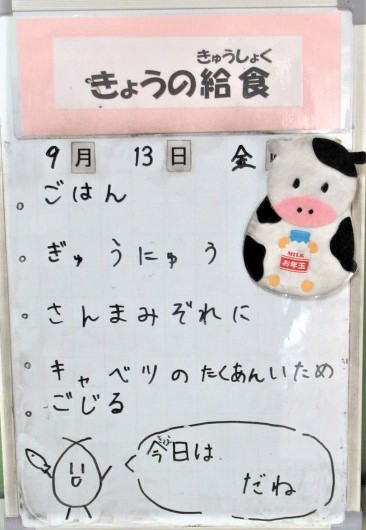 きゅうしょく
きょうの給食
9月 13日 金
ごはん
ぎゅうにゅう
さんまみぞれに
キャベツのたくあんいため
ごじる
MILK
お年玉
きょう
今日は
だね